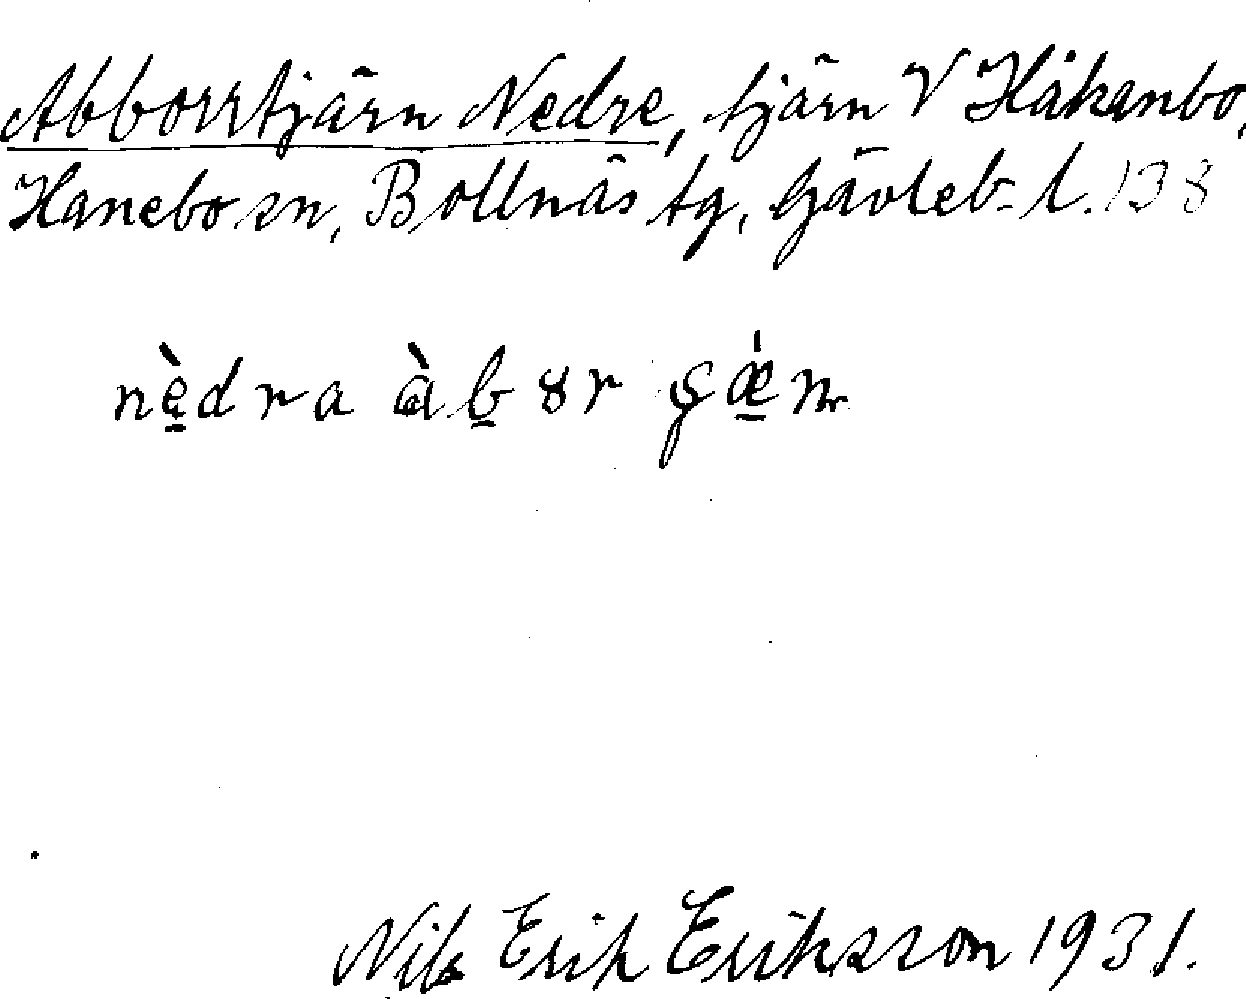 Abborrtjärn Nedre, tjärn V Håkanbo,
Hanebo sn, Bollnäs tg, Gävleb. l. 138
nè̠dra àb̠ȣr ʂǽ̠n
Nils Erik Eriksson 1931.